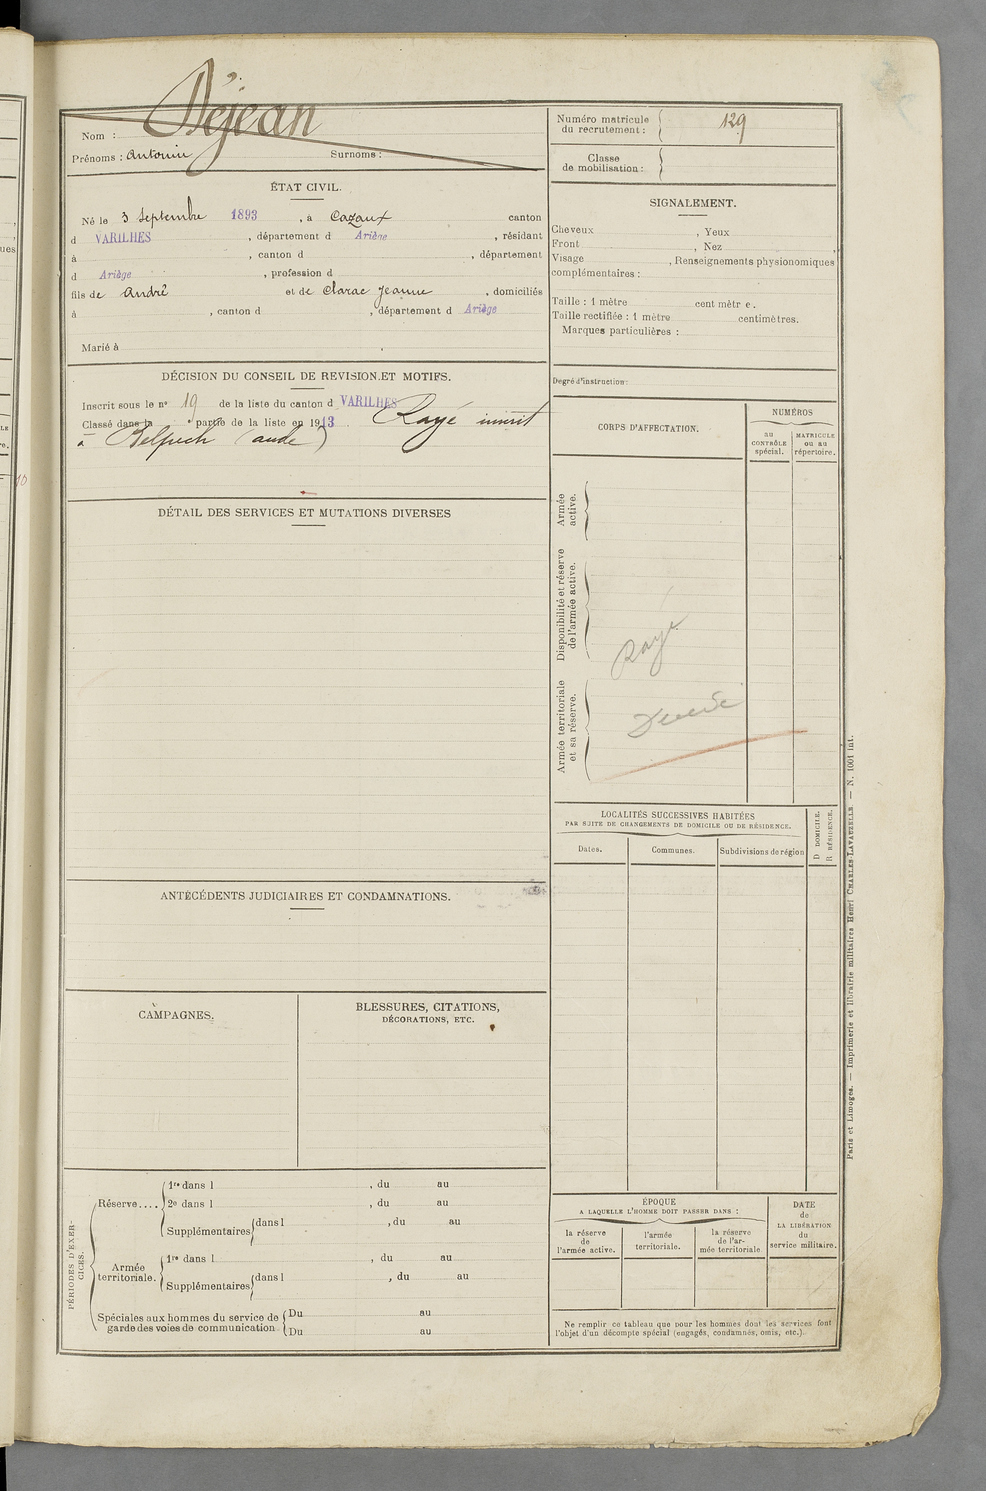 Déjean
Nom :
Prénoms : Antonin Surnome :
ÉTAT CIVIL.
Né le 3 Septembre 1893, à Cazaux canton
d VARILHES, département d Ariège, résidant
à , canton d , département
d Ariège, profession d
fils de André et de Clarac Jeanne, domiciliés
à , canton d , département d Ariège
Marié à
DÉCISION DU CONSEIL DE REVISION ET MOTIFS.
Inscrit sous le nº 19 de la liste du canton d VARILHES
Classé dans la partie de la liste en 1913. Rayé inscrit
à Belpech (Aude)
DÉTAIL DES SERVICES ET MUTATIONS DIVERSES
ANTÉCÉDENTS JUDICIAIRES ET CONDAMNATIONS.
CAMPAGNES.
BLESSURES, CITATIONS,
DÉCORATIONS, ETC.
PÉRIODES D'EXER-
CICES.
Réserve.... 1re dans l , du au
2e dans l , du au
Supplémentaires dans l , du au
Armée
territoriale. 1re dans l , du au
Supplémentaires dans l , du au
Spéciales aux hommes du service de
garde des voies de communication Du au
Du au
Numéro matricule
du recrutement : 129
Classe
de mobilisation :
SIGNALEMENT.
Cheveux , Yeux
Front , Nez ,
Visage , Renseignements physionomiques
complémentaires :
Taille : 1 mètre centimètre.
Taille rectifiée : 1 mètre centimètres.
Marques particulières :
Degré d'instruction:
CORPS D'AFFECTATION.
NUMÉROS
au
CONTRÔLE
spécial.
MATRICULE
ou au
répertoire.
Armée
active.
Disponibilité et réserve
de l'armée active.
Rayé
Armée territoriale
et sa réserve.
LOCALITÉS SUCCESSIVES HABITÉES
PAR SUITE DE CHANGEMENTS DE DOMICILE OU DE RÉSIDENCE.
D DOMICILE.
R RÉSIDENCE.
Dates. Communes. Subdivisions de région
ÉPOQUE
A LAQUELLE L'HOMME DOIT PASSER DANS :
la réserve
de
l'armée active.
l'armée
territoriale.
la réserve
de l'ar-
mée territoriale
DATE
de
LA LIBÉRATION
du
service militaire.
Ne remplir ce tableau que pour les hommes dont les services font
l'objet d'un décompte spécial (engagés, condamnés, omis, etc.).
Paris et Limoges. — Imprimerie et librairie militaires Henri CHARLES-LAVAUZELLE — N. 1001 int.